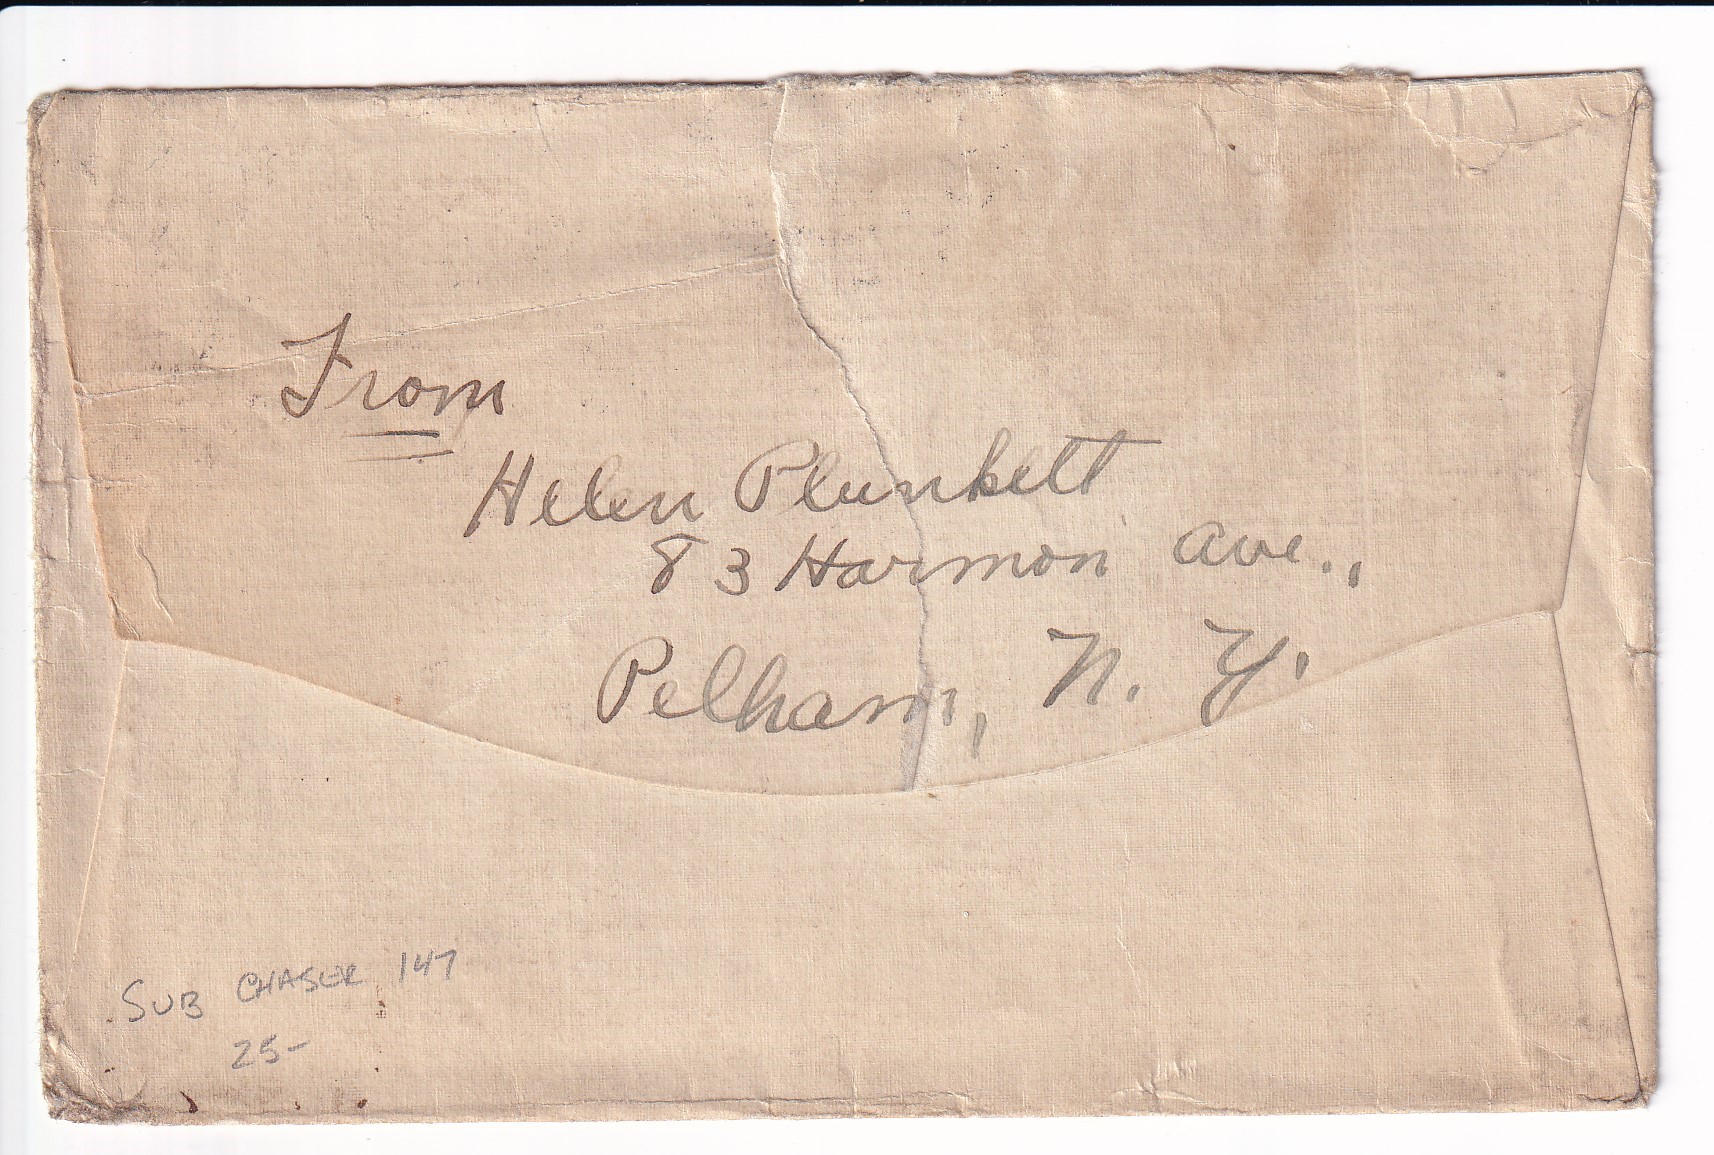 From
Helen Plunkett
83 Harmon Ave.,
Pelham, N. Y.
SUB CHASER 147
25-